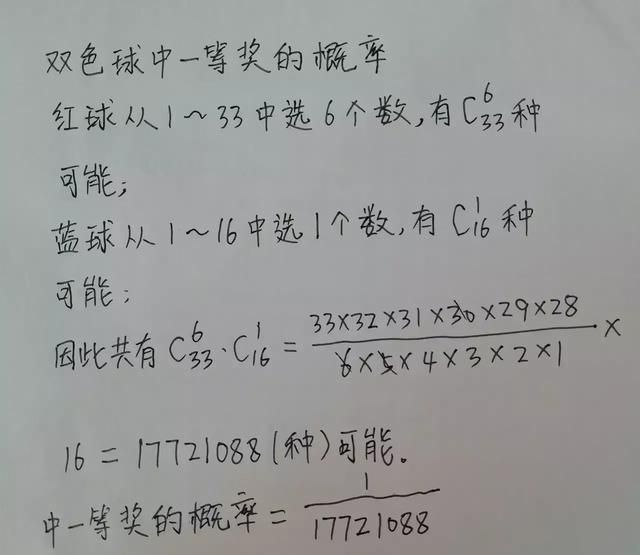 双色球中一等奖的概率
红球从1~33中选6个数,有C₃₃⁶种
可能;
蓝球从1~16中选1个数,有C₁₆¹种
可能;
因此共有C₃₃⁶·C₁₆¹=33×32×31×30×29×28/6×5×4×3×2×1×
16=17721088(种)可能.
中一等奖的概率=1/17721088